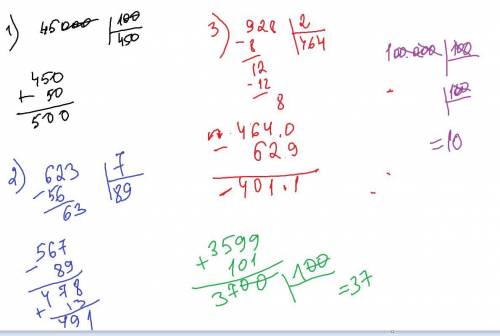 1) 45000 | 100
450
450
+ 50
500
2) 623 | 7
- 56 | 89
63
567
- 89
478
+ 13
491
3) 928 | 2
- 8 | 464
12
- 12
8
464.0
- 62.9
- 401.1
+ 3599
101
3700 | 100 = 37
100.000 | 100
100
= 10